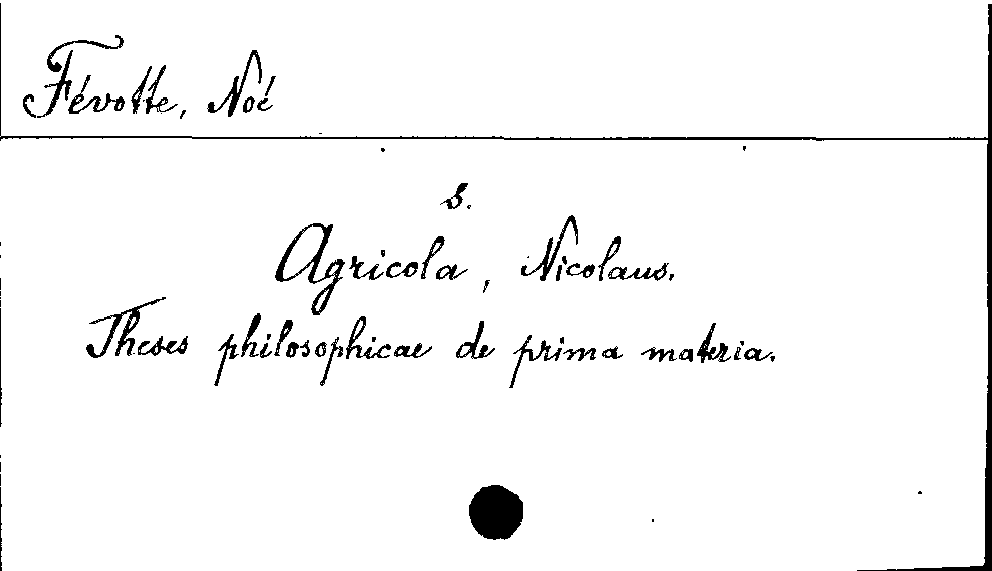 Févotte, Noé
s.
Agricola, Nicolaus.
Theses philosophicae de prima materia.